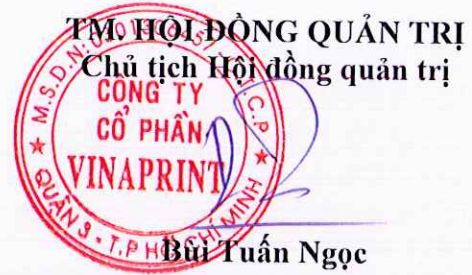 TM. HỘI ĐỒNG QUẢN TRỊ
Chủ tịch Hội đồng quản trị
CÔNG TY
CỔ PHẦN
VINAPRINT
QUẬN 3 - T.P HỒ CHÍ MINH
Bùi Tuấn Ngọc